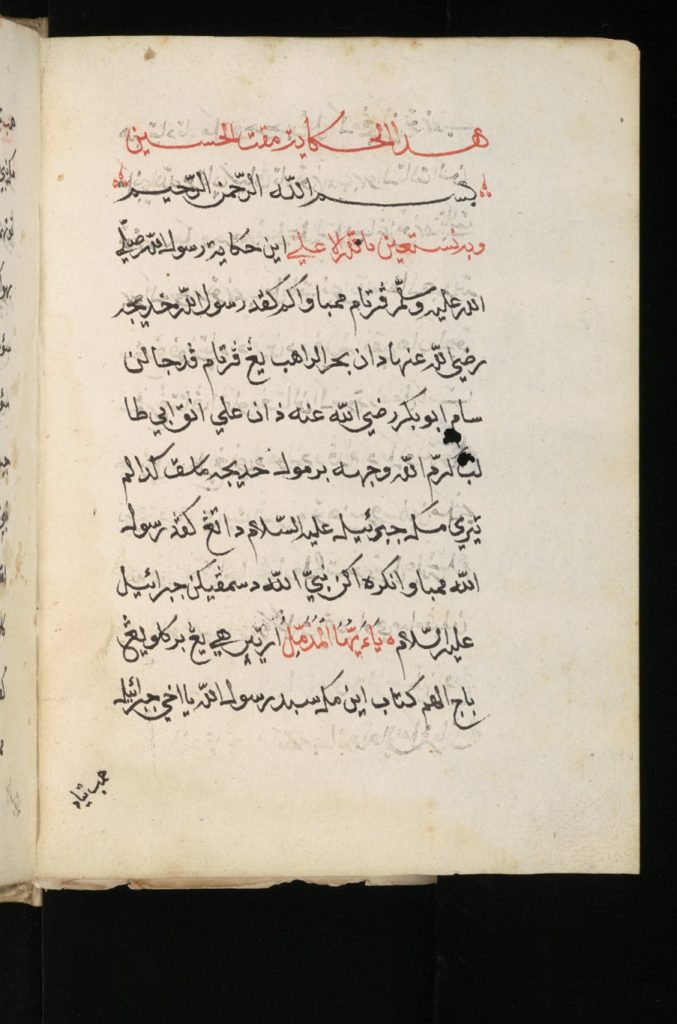 هذا الحكاية مقتل الحسين
بسم الله الرحمن الرحيم
وبه نستعين بالله الاعلي اين حكاية رسول الله صلي
الله عليه وسلّم ڤرتام ممباو اكم كڤد رسول الله خديجه
رضي الله عنها دان بحر الراهب يڠ ڤرتام ڤد جالن
سام ابو بكر رضي الله عنه دان علي انق ابي طا
لب كرّم الله وجهه برموله خديجه ماسق كدالم
مك جبرئيل عليه السّلام داتڠ كڤد رسول
الله ممباو انكره اكن نبيّ الله دسمڤيكن جبرائيل
عليه السّلام يَاءَيُّهَا الْمُزَمِّلُ ارتيڽ هي يڠ بركلوبڠ
كتاب اين مك سبد رسول الله يا اخي جبرائيل